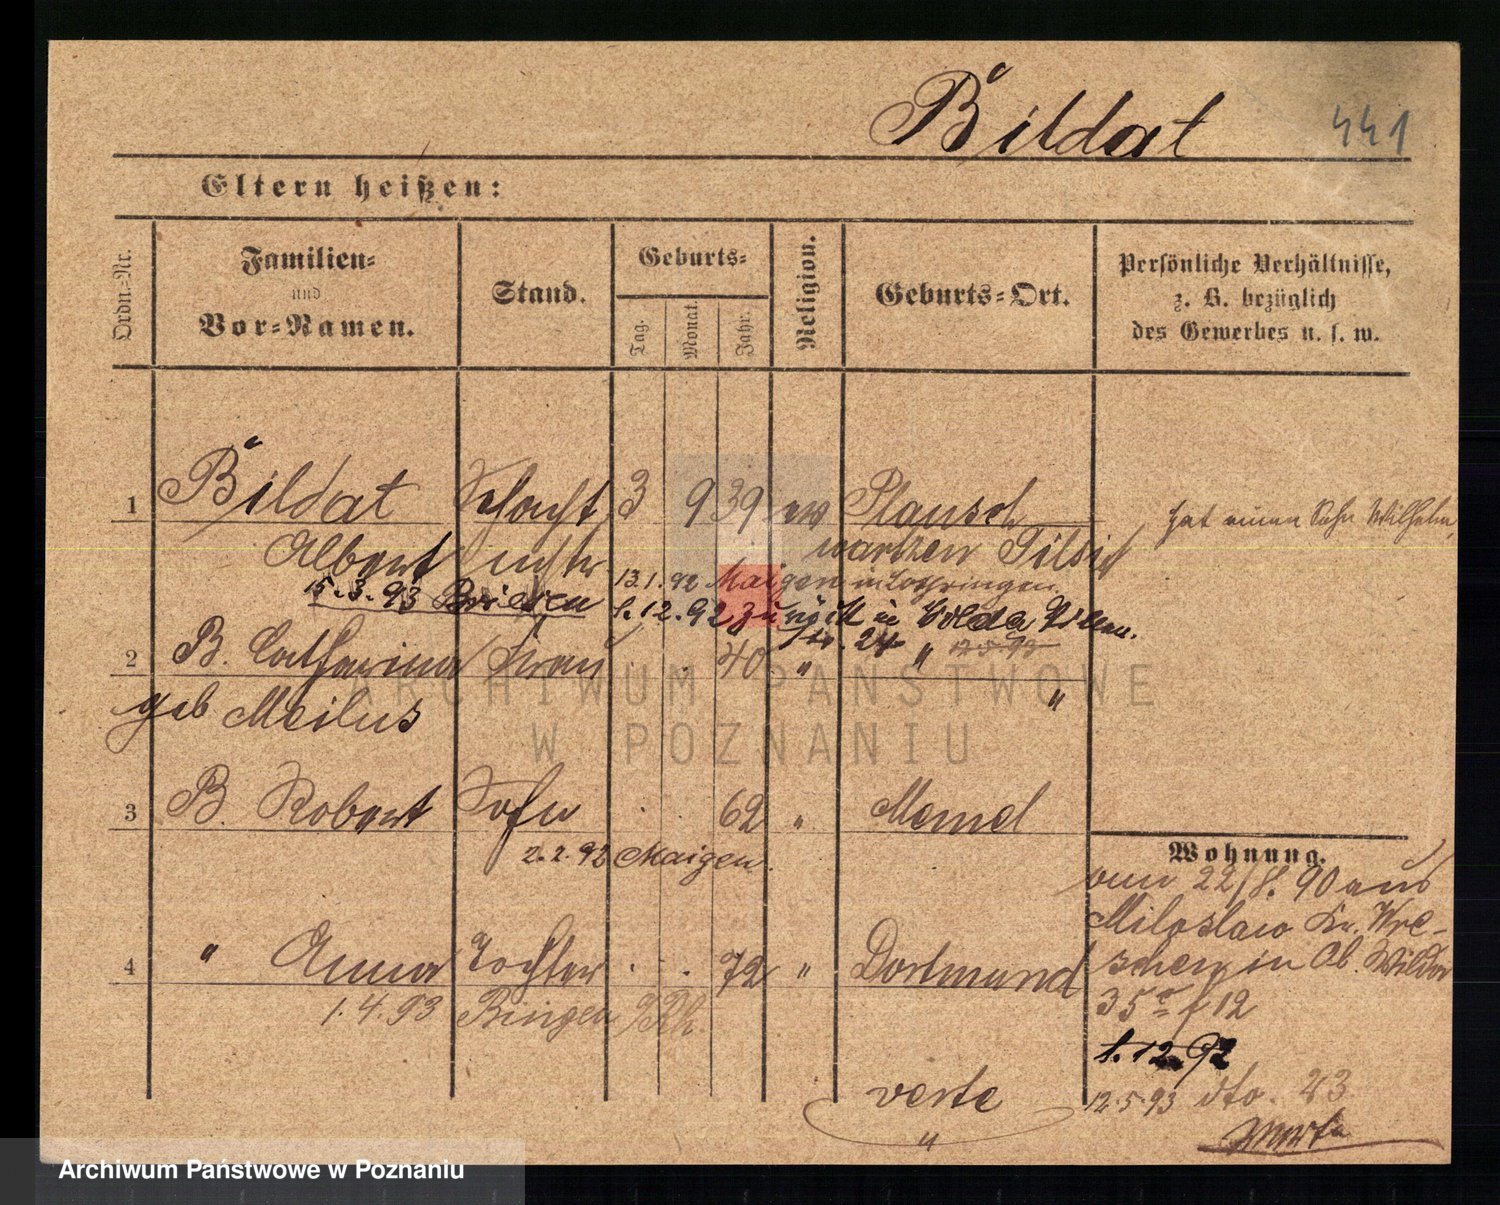 Bildat 441
Eltern heißen:
Ordn.-Nr.
Familien-
und
Vor-Namen.
Stand.
Geburts-
Tag.
Monat.
Jahr.
Religion.
Geburts-Ort.
Persönliche Verhältnisse,
z. B. bezüglich
des Gewerbes u. s. w.
1 Bildat Schacht 3 9 39 ev Plausch
hat einen Sohn Wilhelm
Albert mstr warren Tilsit
13.1.92 Maigen in Lothringen
15.3.93 Briesen 1.12.92 zurück in
24 "
2 B. Catharina Frau 40 " "
geb Meilus
3 B. Robert Sohn 62 " Memel
2.2.92 Maigen
Wohnung.
vom 22/8. 90 aus
Miloslaw Kr. Wre-
schen in Ob. Wilda
35 f 12
1.12.92
12.5.93 dto. 23
4 " Anna Tochter 72 " Dortmund
1.4.93 Bingen /Rh.
verte
ARCHIWUM PAŃSTWOWE
W POZNANIU
Archiwum Państwowe w Poznaniu